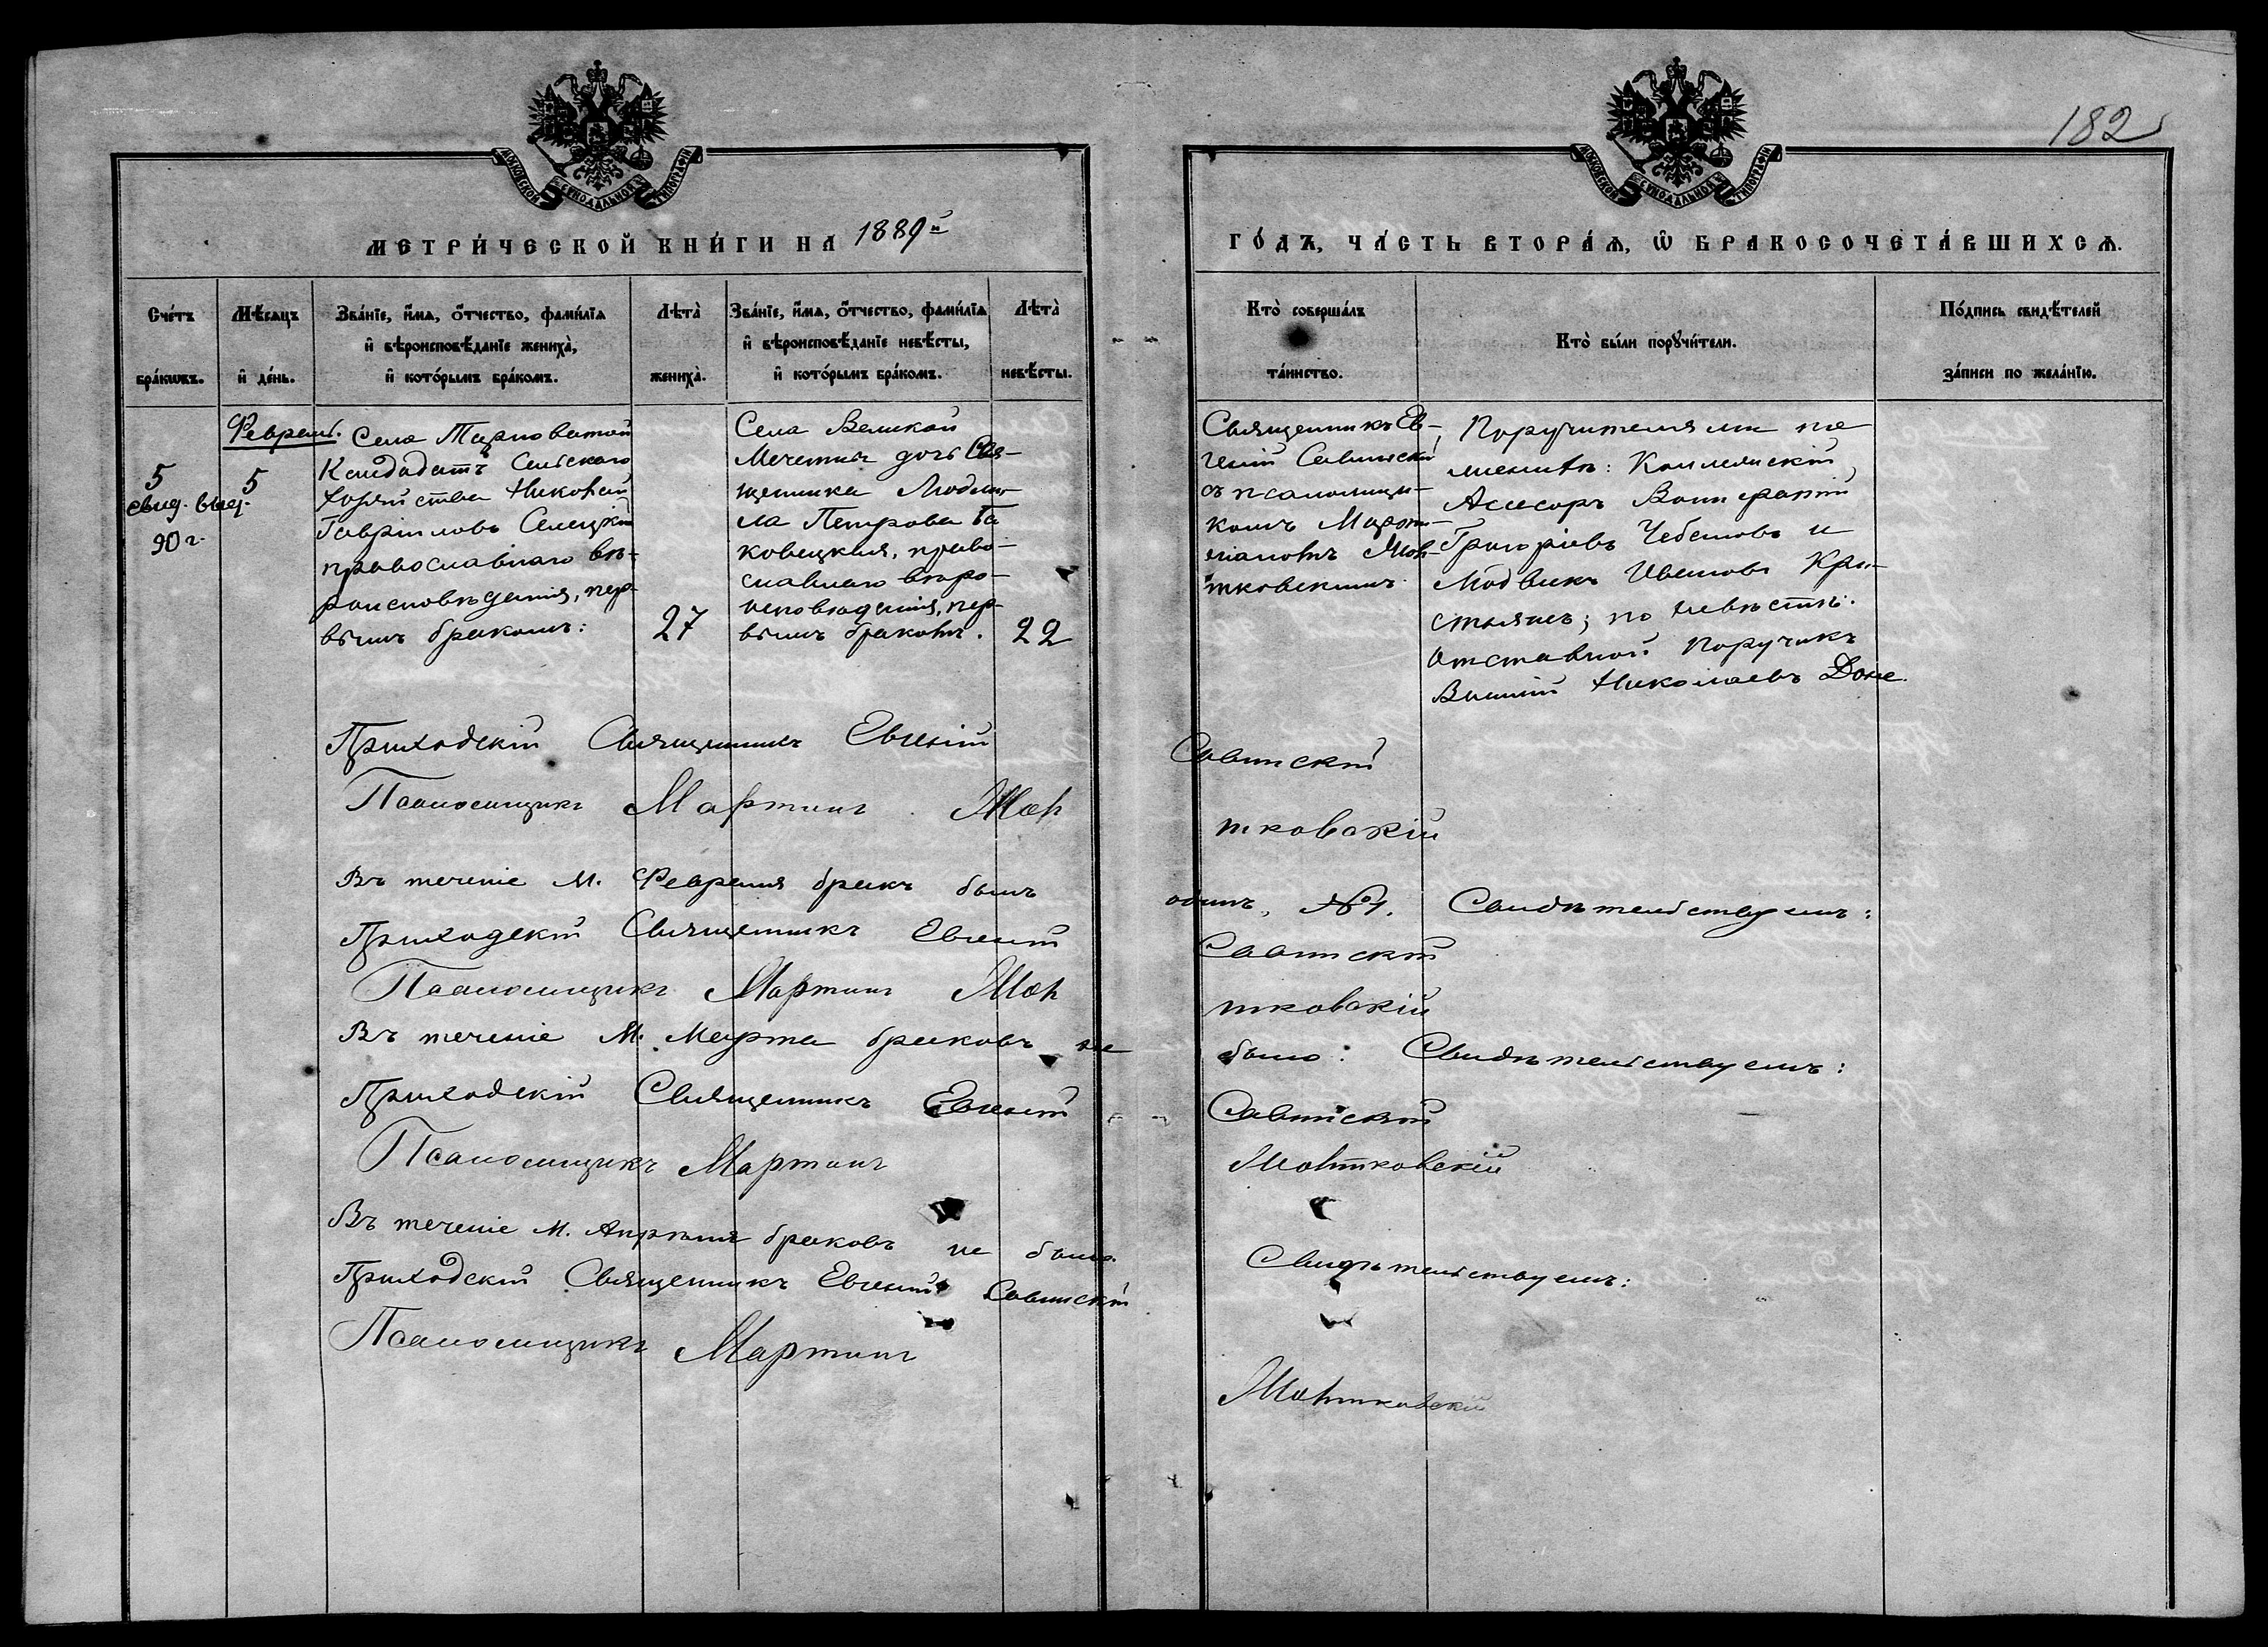 182
МОСКОВСКОЙ СѴНОДАЛЬНОЙ ТИПОГРАФІИ
МОСКОВСКОЙ СѴНОДАЛЬНОЙ ТИПОГРАФІИ
МЕТРИ́ЧЕСКОЙ КНИ́ГИ НА 1889й
ГО́ДЪ, ЧА́СТЬ ВТОРА́Ѧ, Ѡ҆ БРАКОСОЧЕТА́ВШИХСѦ.
Сче́тъ
бра́кѡвъ.
Мѣ́сѧцъ
и҆ де́нь.
Зва́нїе, и҆́мѧ, ѻ҆́тчество, фами́лїѧ
и҆ вѣроисповѣ́данїе жениха̀,
и҆ кото́рымъ бра́комъ.
Лѣта̀
жениха̀.
Зва́нїе, и҆́мѧ, ѻ҆́тчество, фами́лїѧ
и҆ вѣроисповѣ́данїе невѣ́сты,
и҆ кото́рымъ бра́комъ.
Лѣта̀
невѣ́сты.
Кто̀ соверша́лъ
та́инство.
Кто̀ бы́ли порꙋчи́тели.
По́дпись свидѣ́телей
за́писи по жела́нїю.
5
свид. выд.
90 г.
Февраль.
5
Села Тарноватой
Кандидатъ Сельскаго
Хозяйства Николай
Гаврииловъ Селецкій
православнаго вѣ-
роисповѣданія, пер-
вымъ бракомъ:
27
Села Великой
Мечетни дочь Свя-
щенника Людми-
ла Петрова
ковецкая, право-
славнаго вѣро-
исповѣданія, пер-
вымъ бракомъ.
22
Священникъ Ев-
геній Савинскій
съ псаломщи-
комъ Марти-
Мон-
тковскимъ.
Поручителями по
женихѣ: Коллежскій
Асесоръ Вонифатій
Григоріевъ и
Ивановъ Кри-
по невѣстѣ:
Отставной Поручикъ
Николаевъ
Приходскій Священникъ Евгеній Савинскій
Псаломщикъ Мартинъ Монтковскій
Въ теченіе М. Февраля бракъ былъ одинъ, №1. Свидѣтельствуемъ:
Приходскій Священникъ Евгеній Савинскій
Псаломщикъ Мартинъ Монтковскій
Въ теченіе М. Марта браковъ не было: Свидѣтельствуемъ:
Приходскій Священникъ Евгеній Савинскій
Псаломщикъ Мартинъ Монтковскій
Въ теченіе М. Апрѣля браковъ не было. Свидѣтельствуемъ:
Приходскій Священникъ Евгеній Савинскій
Псаломщикъ Мартинъ Монтковскій